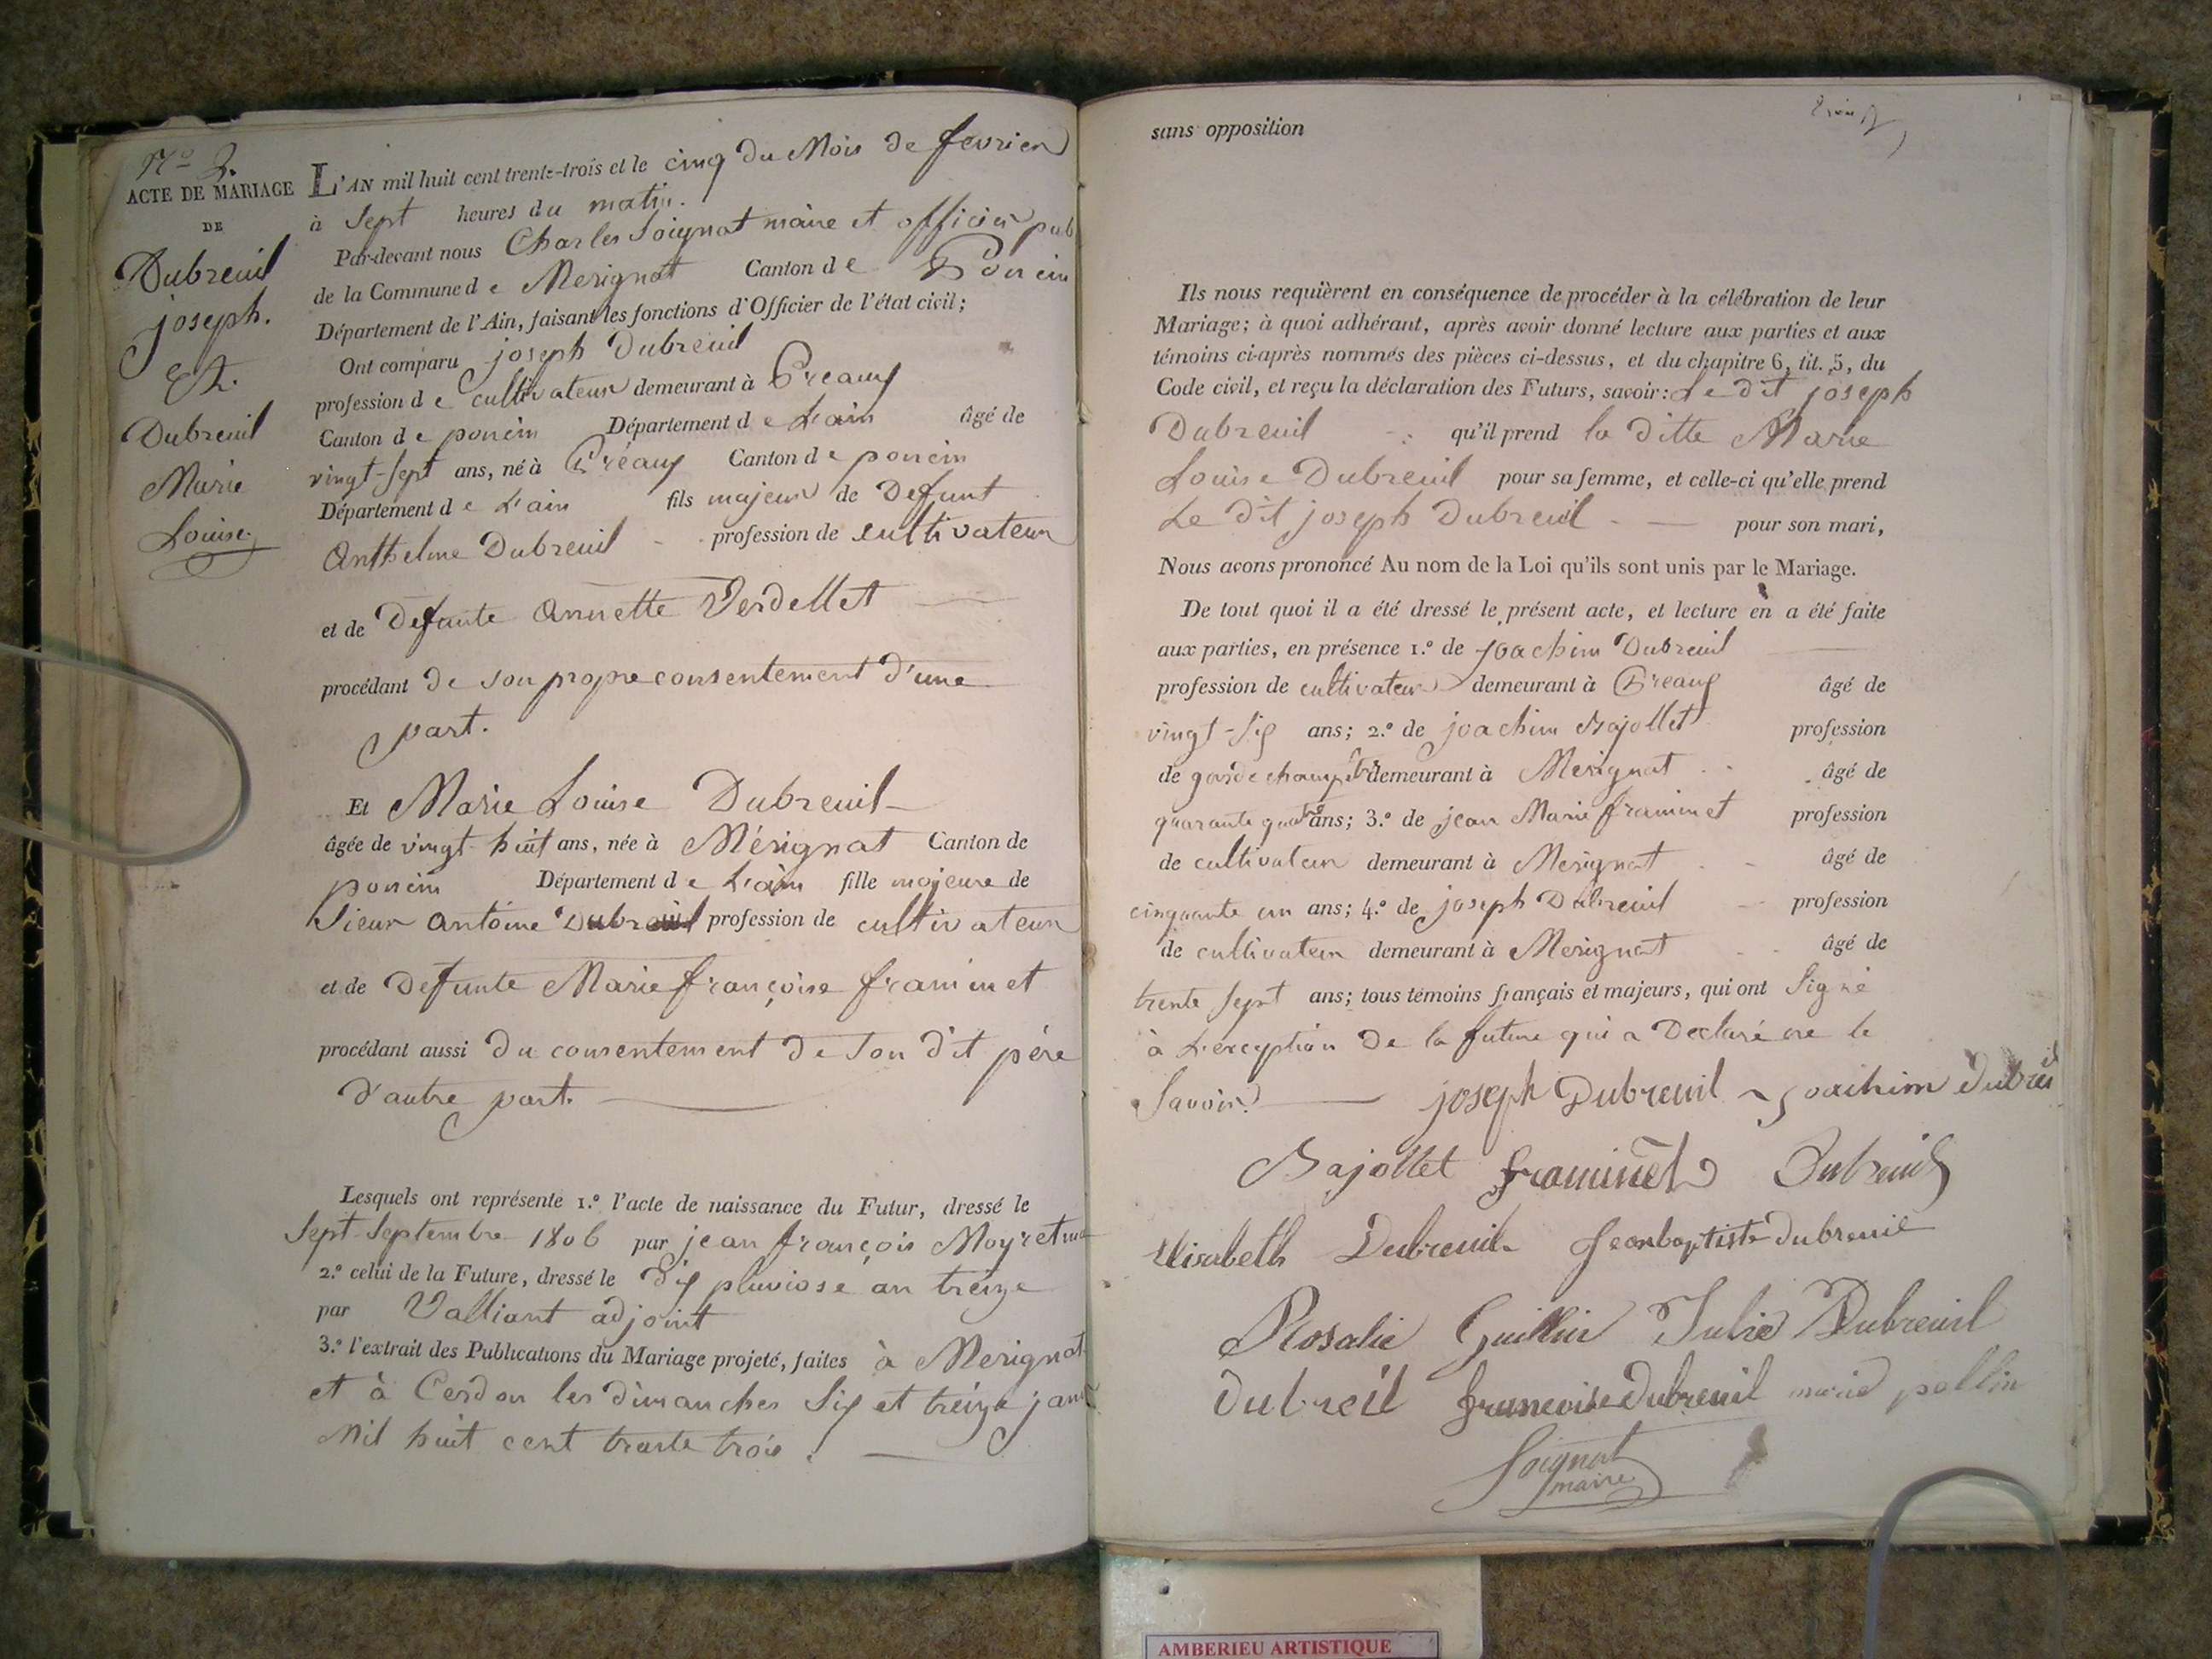 N.o 2.
ACTE DE MARIAGE
DE
Dubreuil
joseph.
Et.
Dubreuil
Marie
Louise.
L'AN mil huit cent trente-trois et le cinq du Mois de fevrier
à Sept heures du matin.
Par-devant nous Charles Soignat maire et officier pub
de la Commune de Merignat Canton de Poncin
Département de l'Ain, faisant les fonctions d'Officier de l'état civil;
Ont comparu joseph Dubreuil
profession de cultivateur demeurant à Preaux
Canton de poncin Département de L'ain âgé de
vingt-sept ans, né à Préaux Canton de poncin
Département de L'ain fils majeur de Defunt
Anthelme Dubreuil profession de cultivateur
et de Defunte Annette Verdellet
procédant de son propre consentement d'une
part.
Et Marie Louise Dubreuil
âgée de vingt-huit ans, née à Mérignat Canton de
poncin Département de L'ain fille majeure de
Sieur Antoine Dubreuil profession de cultivateur
et de Defunte Marie françoise framinet
procédant aussi du consentement de son dit père
d'autre part.
Lesquels ont représente 1.o l'acte de naissance du Futur, dressé le
Sept Septembre 1806 par jean françois Moyret
2.o celui de la Future, dressé le dix pluviose an treize
par Valliant adjoint
3.o l'extrait des Publications du Mariage projeté, faites à Merignat
et à Cerdon les dimanches Six et treize janv
Mil huit cent trente trois.
sans opposition
Ils nous requièrent en conséquence de procéder à la célébration de leur
Mariage; à quoi adhérant, après avoir donné lecture aux parties et aux
témoins ci-après nommés des pièces ci-dessus, et du chapitre 6, tit. 5, du
Code civil, et reçu la déclaration des Futurs, savoir: Le dit joseph
Dubreuil qu'il prend la ditte Marie
Louise Dubreuil pour sa femme, et celle-ci qu'elle prend
Le dit joseph Dubreuil pour son mari,
Nous avons prononcé Au nom de la Loi qu'ils sont unis par le Mariage.
De tout quoi il a été dressé le présent acte, et lecture en a été faite
aux parties, en présence 1.o de joachim Dubreuil
profession de cultivateur demeurant à Preaux âgé de
vingt-six ans; 2.o de joachim Bajollet profession
de garde champêtre demeurant à Merignat âgé de
quarante quatre ans; 3.o de jean Marie framinet profession
de cultivateur demeurant à Merignat âgé de
cinquante un ans; 4.o de joseph Dubreuil profession
de cultivateur demeurant à Merignat âgé de
trente Sept ans; tous témoins français et majeurs, qui ont Signé
à L'exception de la future qui a Declaré ne le
Savoir. joseph Dubreuil joachim dubreil
Bajollet framinet Dubreuil
Elisabeth Dubreuil jeanbaptiste dubreuil
Rosalie Guillin Julie Dubreuil
dubreil francoise dubreuil marie pollin
Soignat
maire
AMBERIEU ARTISTIQUE